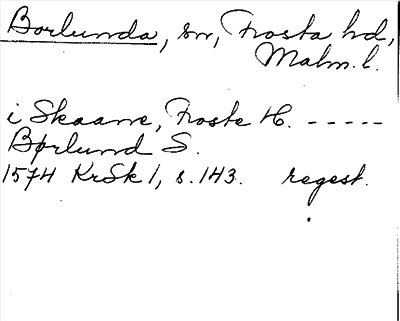 Borlunda, sn, Frosta hd,
Malm. l.
i Skaane, Froste H. -----
Børlund S.
1574 KrSk 1, s. 143. regest.